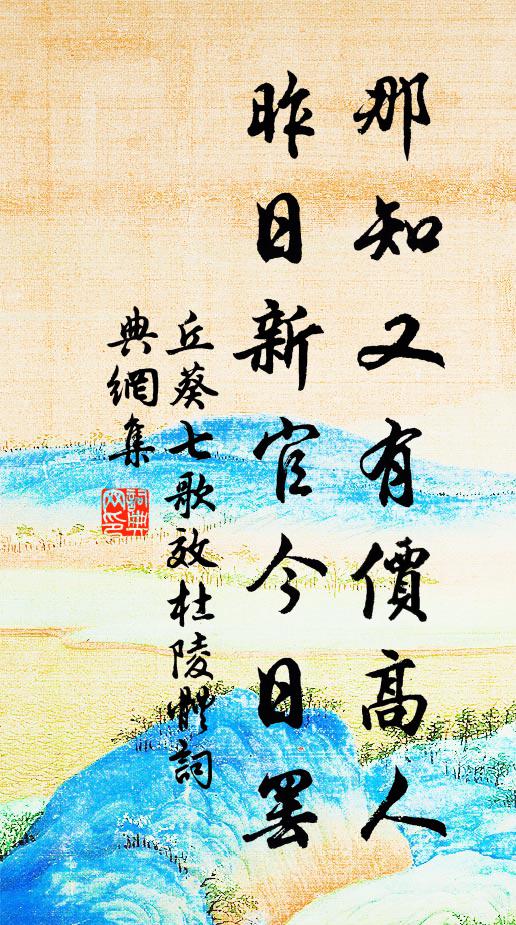 那知又有價高人
昨日新官今日罷
丘葵七歌效杜陵體詞
典網集
詞典网印